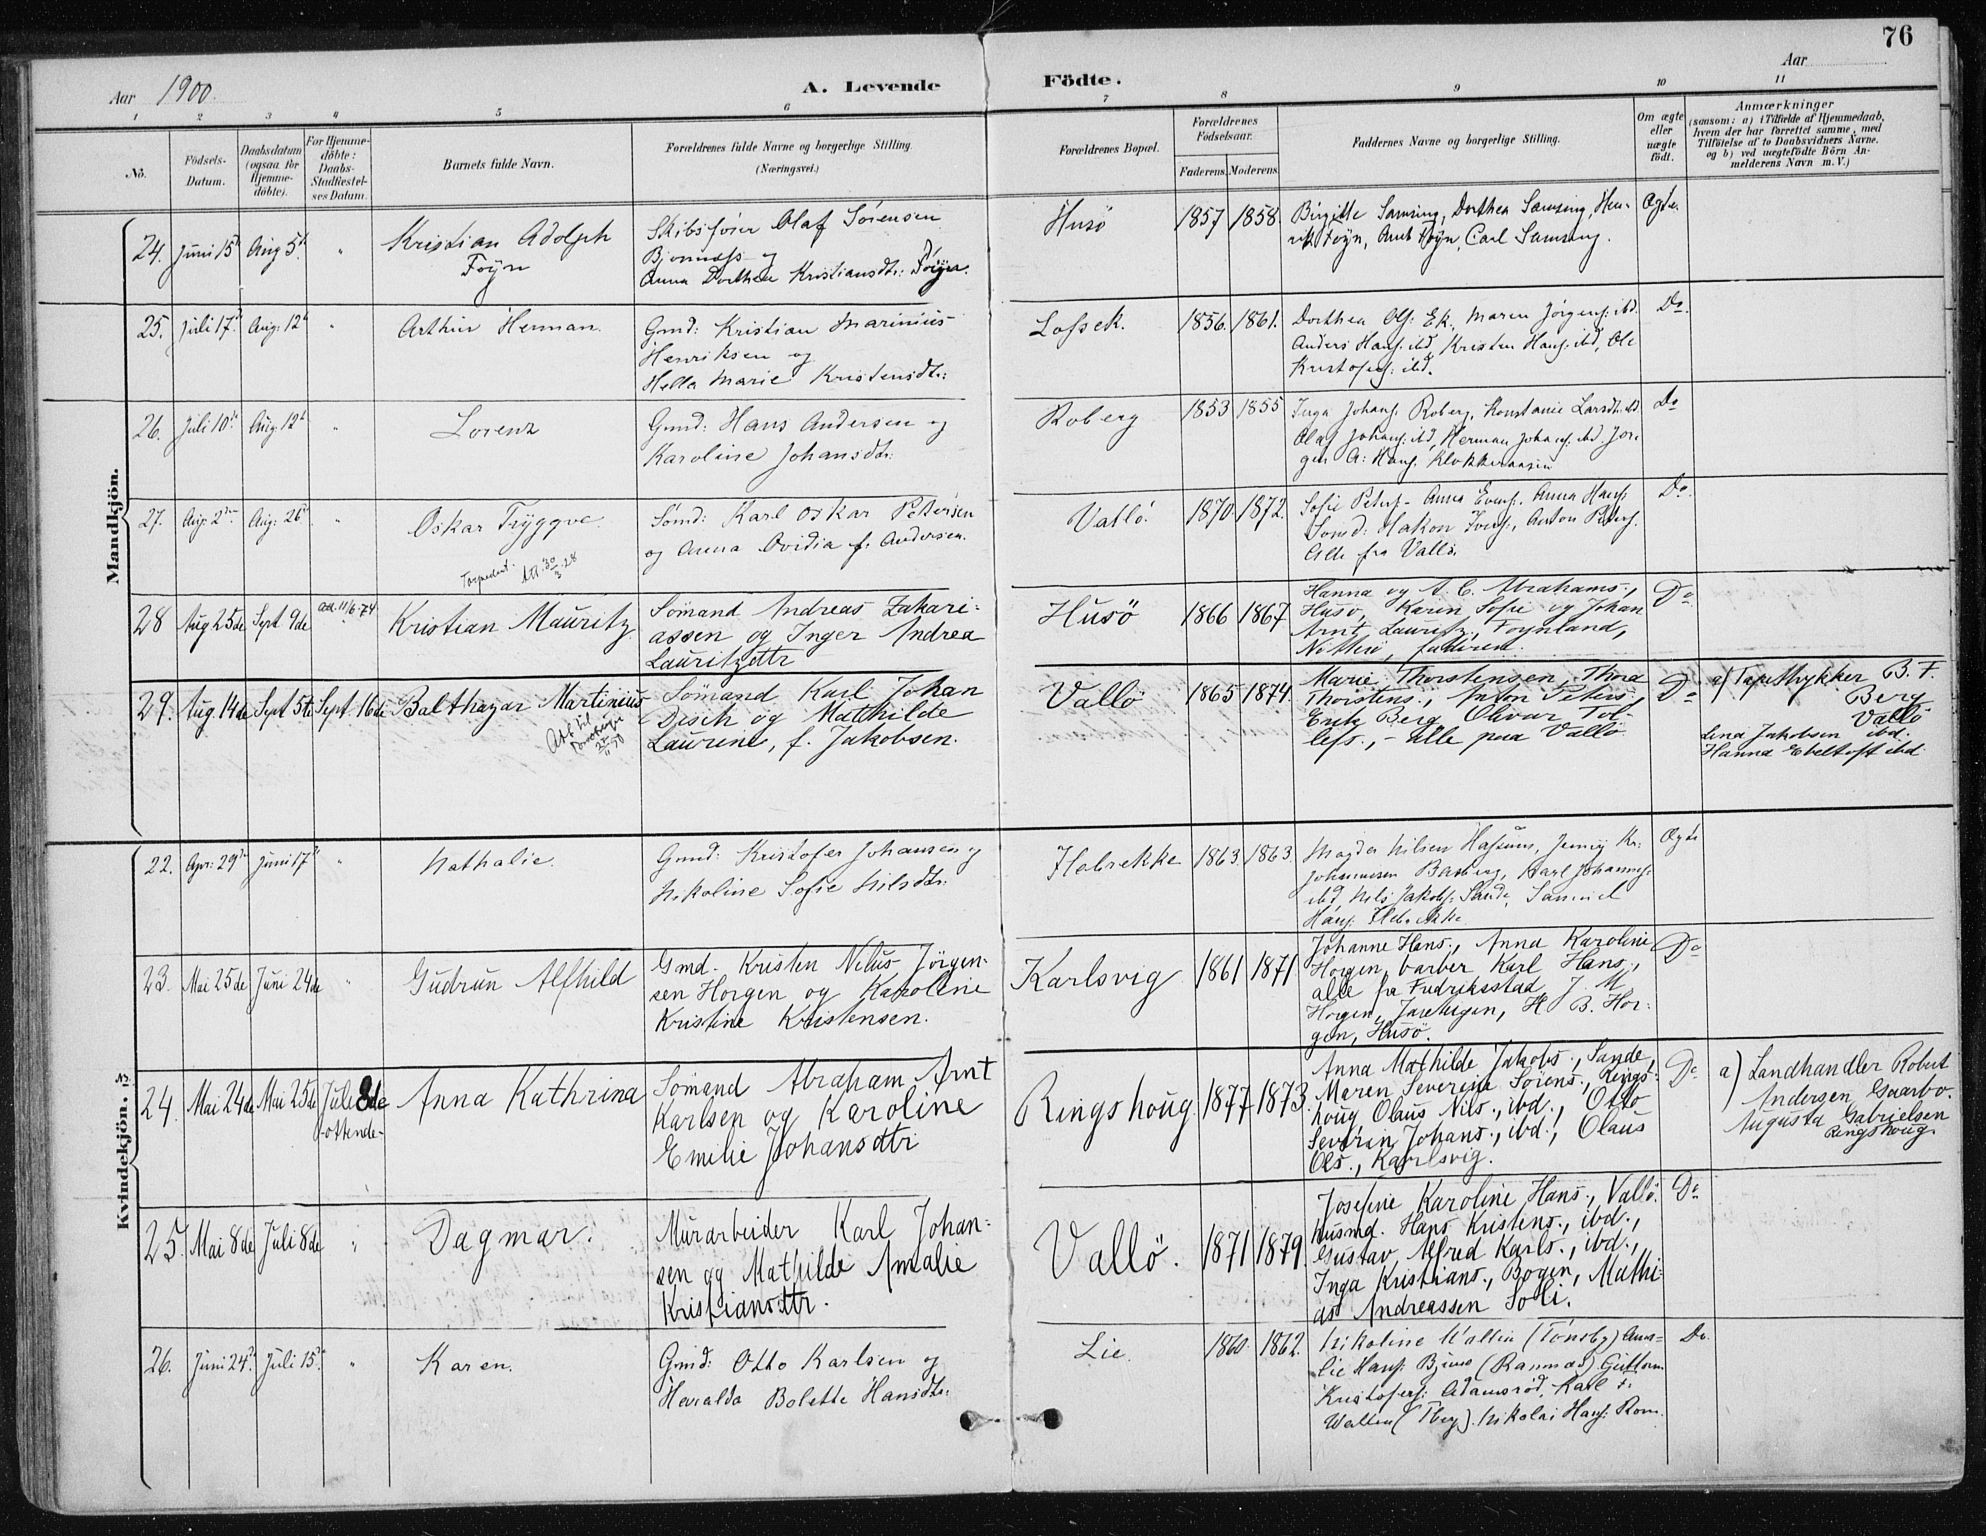 76
Aar 1900.
A. Levende Födte.
Aar
1 2 3 4 5 6 7 8 9 10 11
No.
Födsels-Datum.
Daabsdatum (ogsaa for Hjemmedöbte).
For Hjemmedöbte: Daabs-Stadfæstelses Datum.
Barnets fulde Navn.
Forældrenes fulde Navne og borgerlige Stilling. (Næringsvei.)
Forældrenes Bopæl.
Forældrenes Födselsaar.
Faderens. Moderens.
Faddernes Navne og borgerlige Stilling.
Om ægte eller uægte födt.
Anmærkninger
(saasom: a) i Tilfælde af Hjemmedaab,
hvem der har forrettet samme, med
Tilföielse af to Daabsvidners Navne,
og b) ved uægtefödte Börn Anmelderens Navn m. V.)
Mandkjön.
24. Juni 15 Aug 5. " Kristian Adolph
Föyn
Skibsförer Olaf Sörensen
og
Anna Dorthea Kristiansdtr: Föyn.
Husö 1857 1858.
Birgitte Samsing, Dorthea Samsing, Hen-
rik Föyn, Carl Samsing.
Ægte.
25. Juli 17 Aug: 12 " Arthur Herman.
Gmd: Kristian Marinius
Henriksen og
Hella Marie Kristensdtr:
1856. 1861.
Dorthea Ols: Ek, Maren Jörgens: ibd.
Anders Hans: ibd, Kristen Hans: ibd, Ole
Kristofers: ibd.
Do.
26. Juli 10 Aug: 12 " Lorenz
Gmd: Hans Andersen og
Karoline Johansdtr:
Roberg 1853 1855
Inga Johans: Roberg, Konstanie Larsdtr: ibd.
Olaf Johans: ibd, Herman Johans: ibd. Jör-
gen A: Hans: Klokkeraasen
Do
27. Aug: 2 Aug: 26 " Oskar Tryggve.
Sömd: Karl Oskar Petersen
og Anna Ovidia f. Andersen.
Vallö. 1870. 1872.
Sofie Peters. Anna Evens. Anna Hans:
Sömd: Hakon Ivers:, Anton Peters.
Alle fra Vallö.
Do.
Att. 30/3.28
28 Aug 25de Sept 9de Att. 11/6-74 Kristian Mauritz
Sömand Andreas Zakari-
assen og Inger Andrea
Lauritzdtr
Husö 1866 1867
Hanna og A. C. Abrahams.,
Husö, Karen Sofie og Johan
Arnt Lauritz., Föynland,
Nötterö, faderen.
Do
29. Aug 14de Sept 5te Sept 16de Balthazar Martinius
Sömand Karl Johan
Disch og Mathilde
Laurene, f. Jakobsen.
Vallö 1865 1874.
Marie Thorstensen, Thora
Thorstens., Anton Peters.,
Erik Berg, Olivar Tol-
lefs., - alle paa Vallö
Do
a) Tapettrykker B. F.
Berg
Vallö
Lina Jakobsen ibd.
Hanna Ebeltoft ibd
Kvindekjön.
22. Apr: 29 Juni 17 " Nathalie.
Gmd: Kristofer Johansen og
Nikoline Sofie Nilsdtr:
Ilebrekke 1863. 1863.
Magda Nilsen Hasum, Jenny Kr:
Johannesen Basberg, Karl Johannes:
ibd, Nils Jakobs: Sande, Samuel
Hans: Ilebrekke.
Ægte
23. Mai 25de Juni 24de " Gudrun Alfhild
Gmd. Kristen Nilus Jörgen-
sen Horgen og Karoline
Kristine Kristensen.
Karlsvig 1861 1871
Johanne Hans., Anna Karoline
Horgen, barber Karl Hans.,
alle fra Fredriksstad, J. M.
Horgen, H. B. Hor-
gen, Husö.
Do
24. Mai 24de Mai 25de Juli 8de
-ottende-
Anna Kathrina
Sömand Abraham Arnt
Karlsen og Karoline
Emilie Johansdtr
Ringshoug. 1877 1873.
Anna Mathilde Jakobs., Sande,
Maren Severine Sörens., Rings-
houg Olaus Nils., ibd., Otto
Severin Johans., ibd., Olaus
Ols., Karlsvig.
Do
a) Landhandler Robert
Andersen Gaarbo.
Augusta Gabrielsen
Ringshoug.
25. Mai 8de Juli 8de " Dagmar.
Murarbeider Karl Johan-
sen og Mathilde Amalie
Kristiansdtr.
Vallö. 1871 1879.
Josefine Karoline Hans., Vallö.
Husmd. Hans Kristens., ibd.,
Gustav Alfred Karls., ibd.,
Inga Kristians., Bogen, Mathi-
as Andreassen Soli.
Do
26. Juni 24 Juli 15 " Karen.
Gmd: Otto Karlsen og
Haralda Bolette Hansdtr:
Lie. 1860. 1862.
Nikoline Wallin (Tönsbg) Ama-
lie Hans: (Ramnæs). Guttorm
Kristofers: Adamsröd, Karl
(Tbg). Nikolai Hans: Rom.
Do.